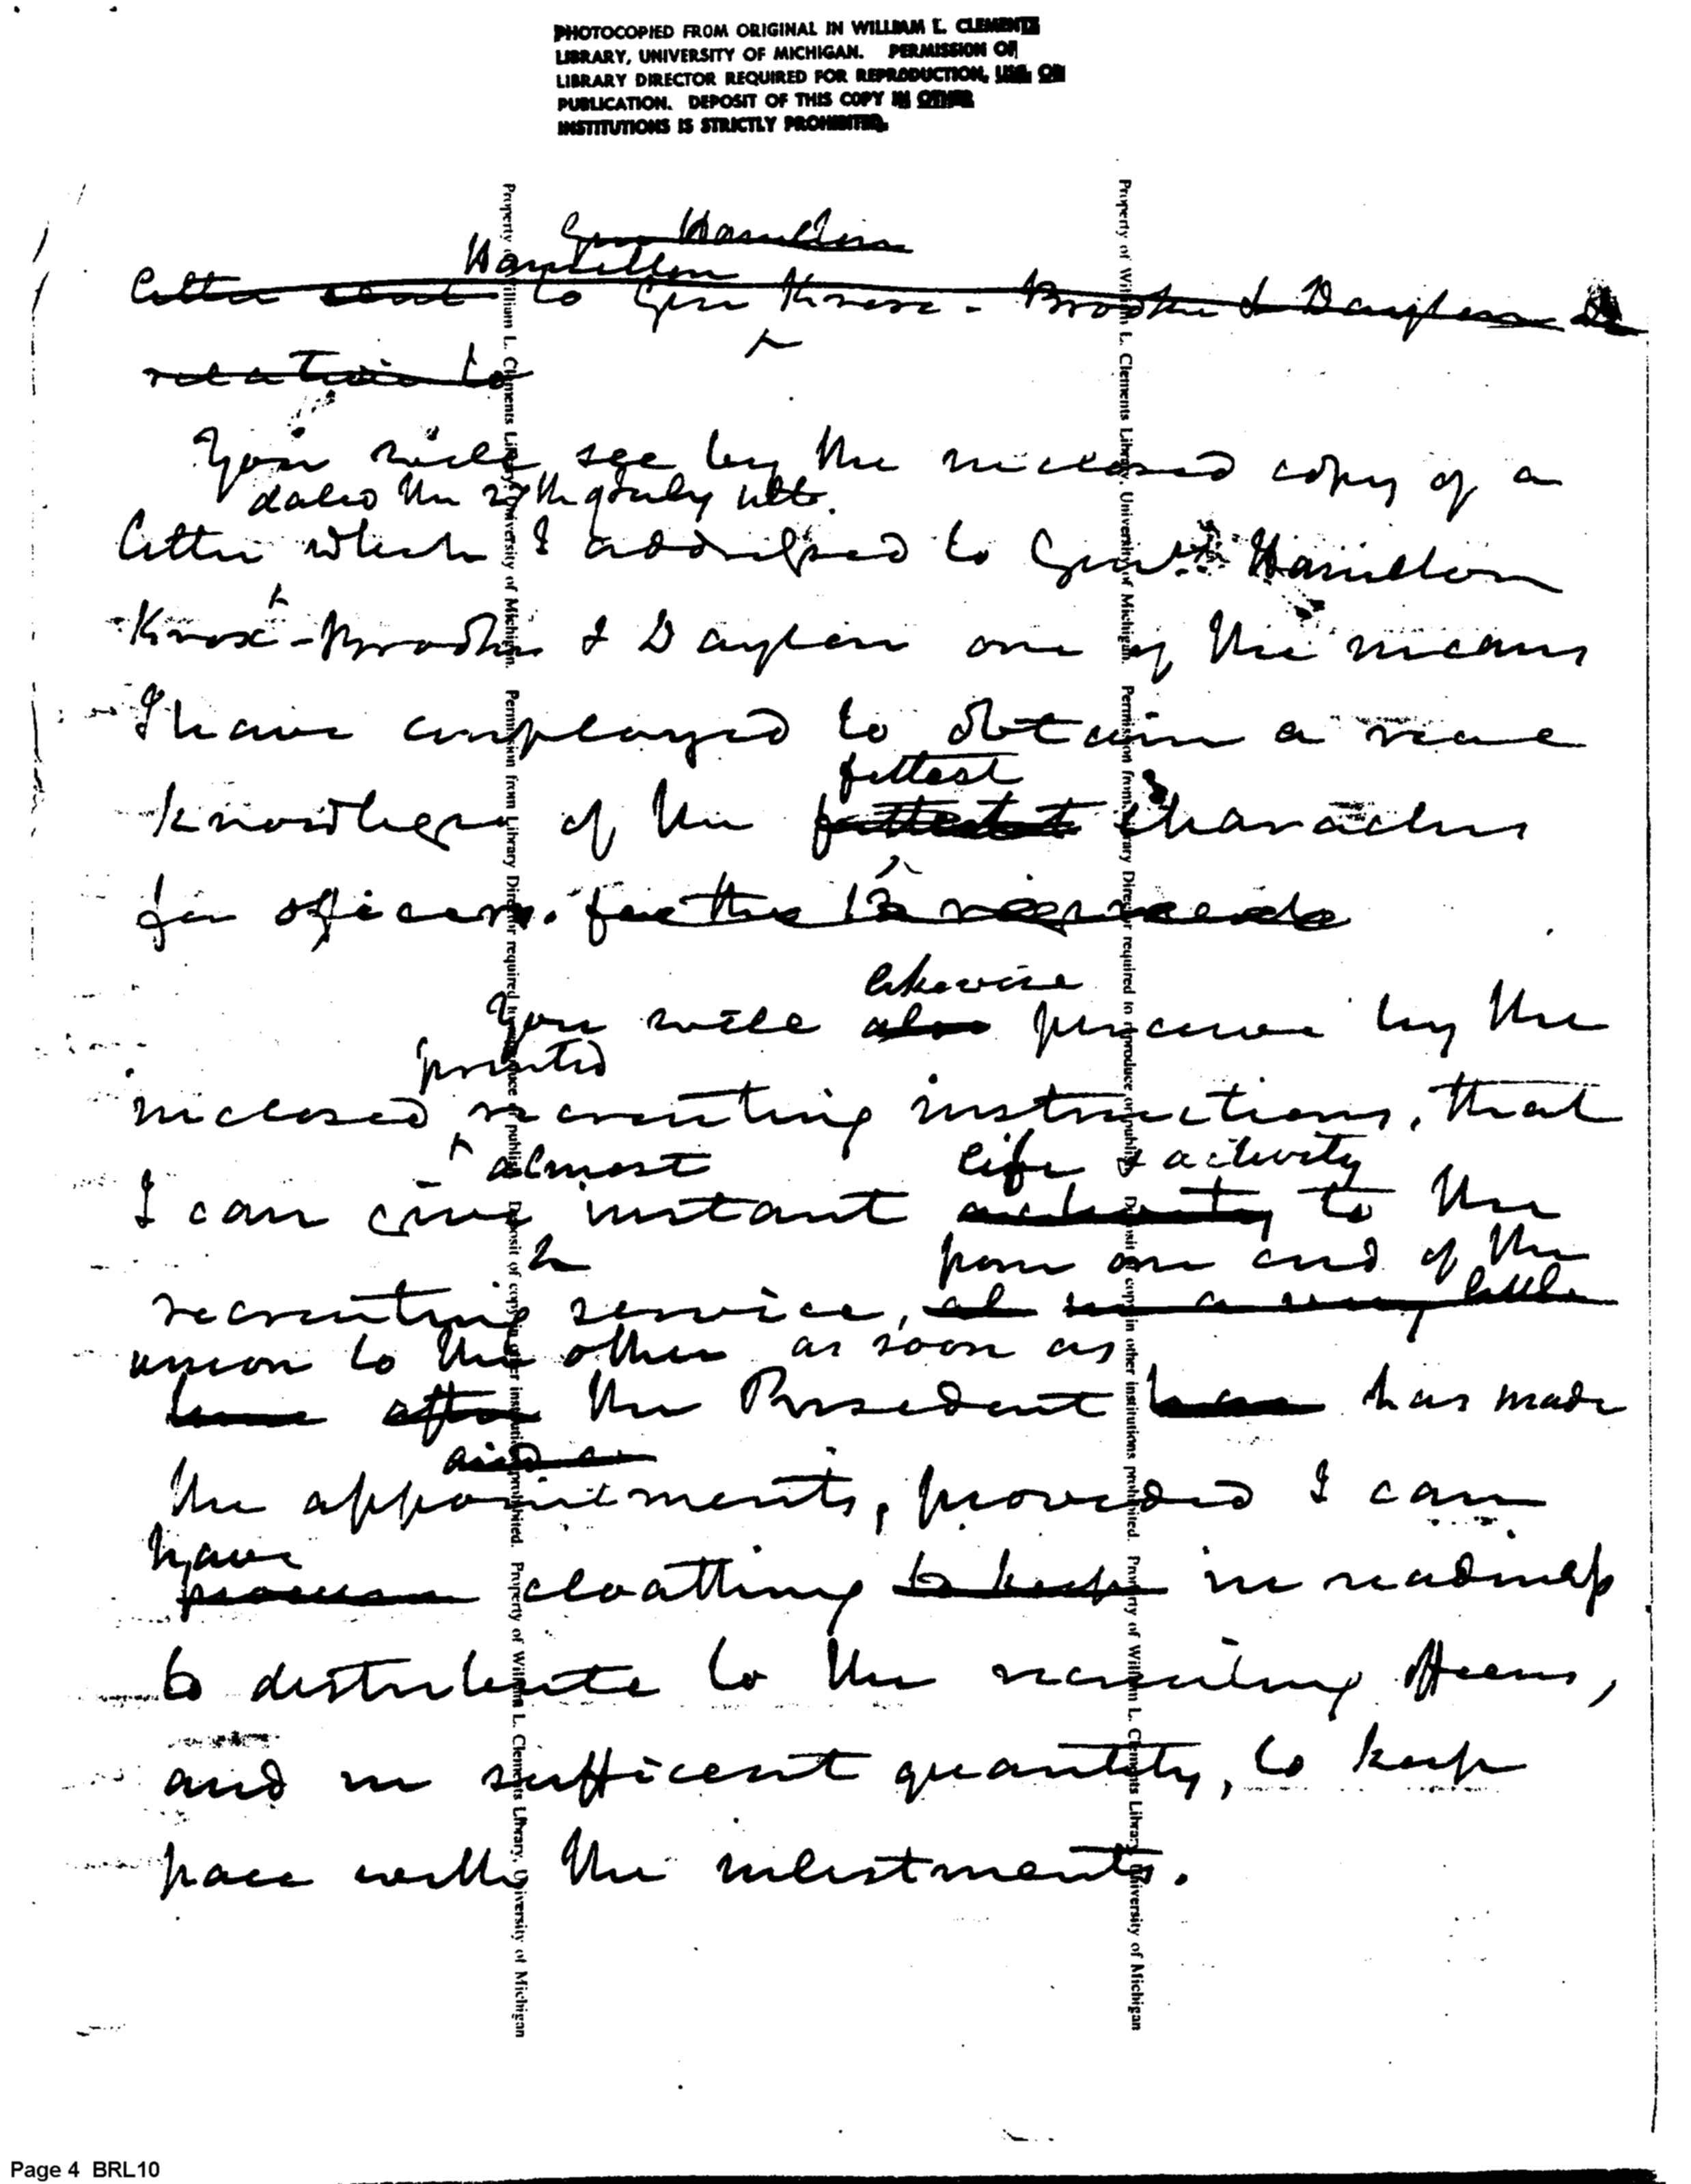 PHOTOCOPIED FROM ORIGINAL IN WILLIAM L. CLEMENTS
LIBRARY, UNIVERSITY OF MICHIGAN. PERMISSION OF
LIBRARY DIRECTOR REQUIRED FOR REPRODUCTION, USE, OR
PUBLICATION. DEPOSIT OF THIS COPY IN OTHER
INSTITUTIONS IS STRICTLY PROHIBITED.
Gen Hamilton
Hamilton
letter sent to Gen Knox - Brooks & Dayton
relative to
You will see by the inclosed copy of a
dated the 27th of July ulto.
letter which I addressed to Genls Hamilton
Knox - Brooks & Dayton one of the means
I have employed to obtain a real
fittest
knowlege of the fittest characters
for officers. for the 12 regiments
likewise
You will also perceive by the
printed
inclosed recruiting instructions, that
almost life & activity
I can give instant activity to the
from one end of the
recruiting service, in a very little
union to the other as soon as
time after the President has has made
the appointments, provided I can
have
procure cloathing to keep in readiness
to distribute to the recruiting officers,
and in sufficient quantity, to keep
pace with the inlistments.
Property of William L. Clements Library, University of Michigan. Permission from Library Director required to reproduce or publish. Deposit of copy in other institutions prohibited. Property of William L. Clements Library, University of Michigan
Property of William L. Clements Library, University of Michigan. Permission from Library Director required to reproduce or publish. Deposit of copy in other institutions prohibited. Property of William L. Clements Library, University of Michigan
Page 4 BRL10